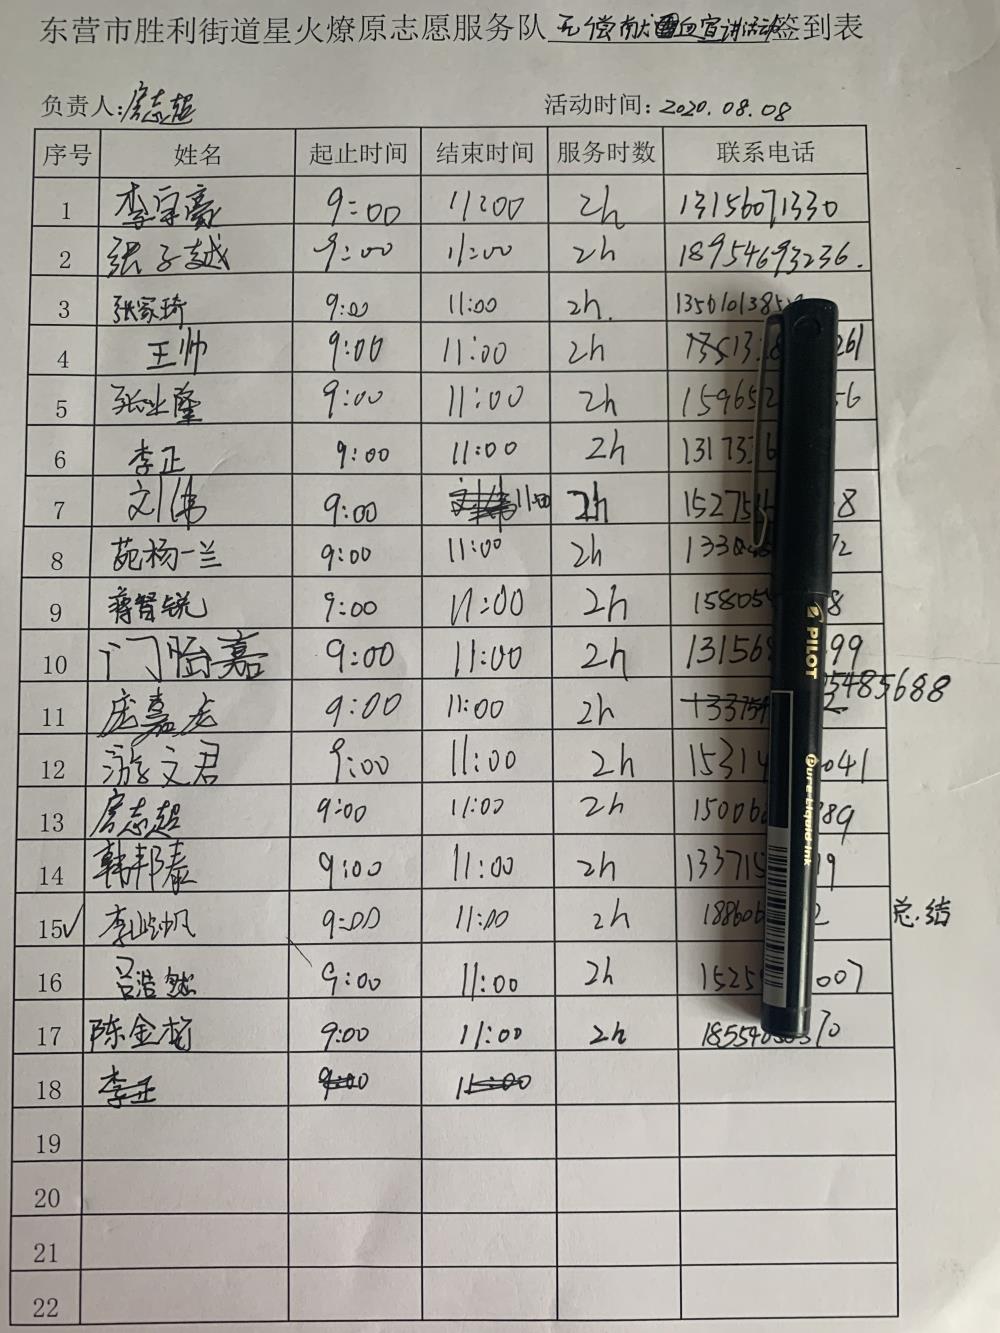 东营市胜利街道星火燎原志愿服务队无偿献血宣讲活动签到表
负责人:房志超 活动时间:2020.08.08
序号 姓名 起止时间 结束时间 服务时数 联系电话
1 李宗豪 9:00 11:00 2h 13156071330
2 张子越 9:00 11:00 2h 18954693236.
3 张家琦 9:00 11:00 2h. 135010138
4 王帅 9:00 11:00 2h 261
5 张业隆 9:00 11:00 2h 15965 56
6 李正 9:00 11:00 2h 13173
7 刘伟 9:00 11:00 2h 1527 8
8 苑杨一兰 9:00 11:00 2h 133 2
9 蒋智锐 9:00 11:00 2h 15805 8
10 门怡嘉 9:00 11:00 2h 13156 99
5485688
11 庞嘉 9:00 11:00 2h
12 游文君 9:00 11:00 2h 1531 041
13 房志超 9:00 11:00 2h 15006 389
14 韩邦泰 9:00 11:00 2h 133715 19
15√ 李屿帆 9:00 11:00 2h 18860 2 总结
16 吕浩然 9:00 11:00 2h 1525 007
17 陈金梅 9:00 11:00 2h 18554 70
18 李正 9:00 11:00
19
20
21
22
PILOT
Pure Liquid Ink